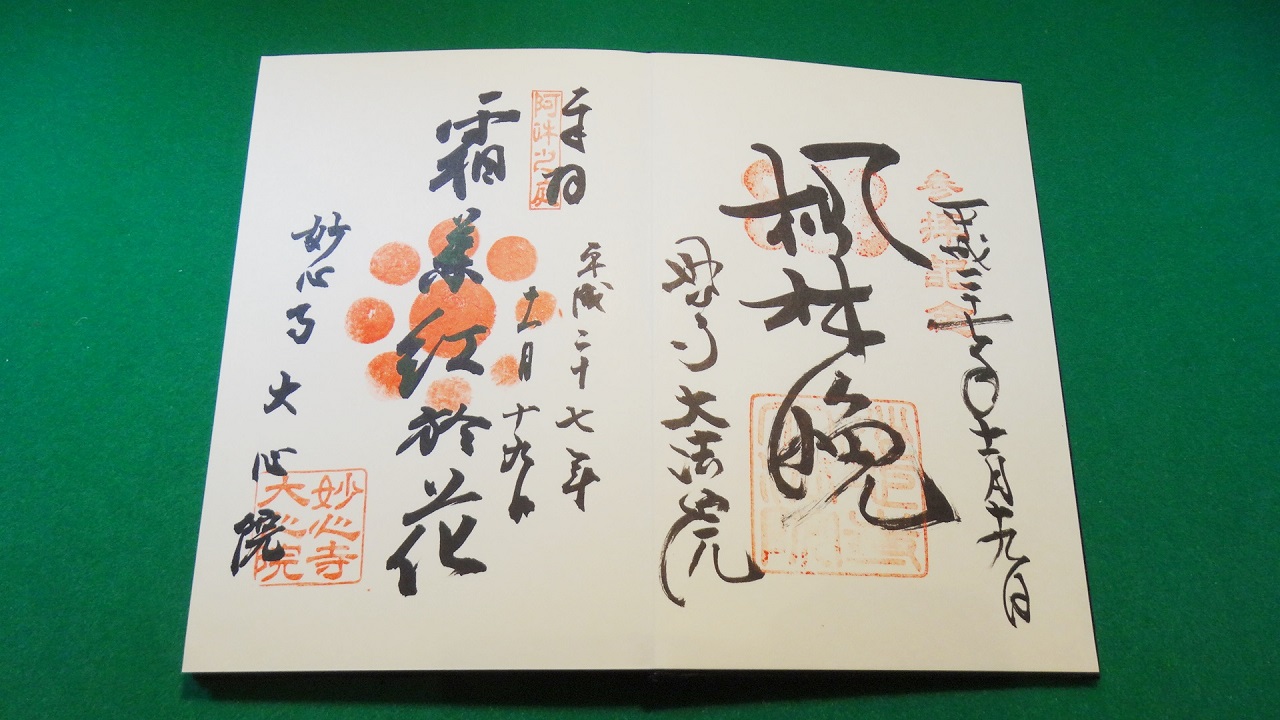 参拝記念
平成二十七年十一月十九日
楓林晩
妙心寺 大法院
奉拝
阿吽之庭
平成二十七年
十一月十九日
霜葉紅於花
妙心寺 大心院
妙心寺
大心院